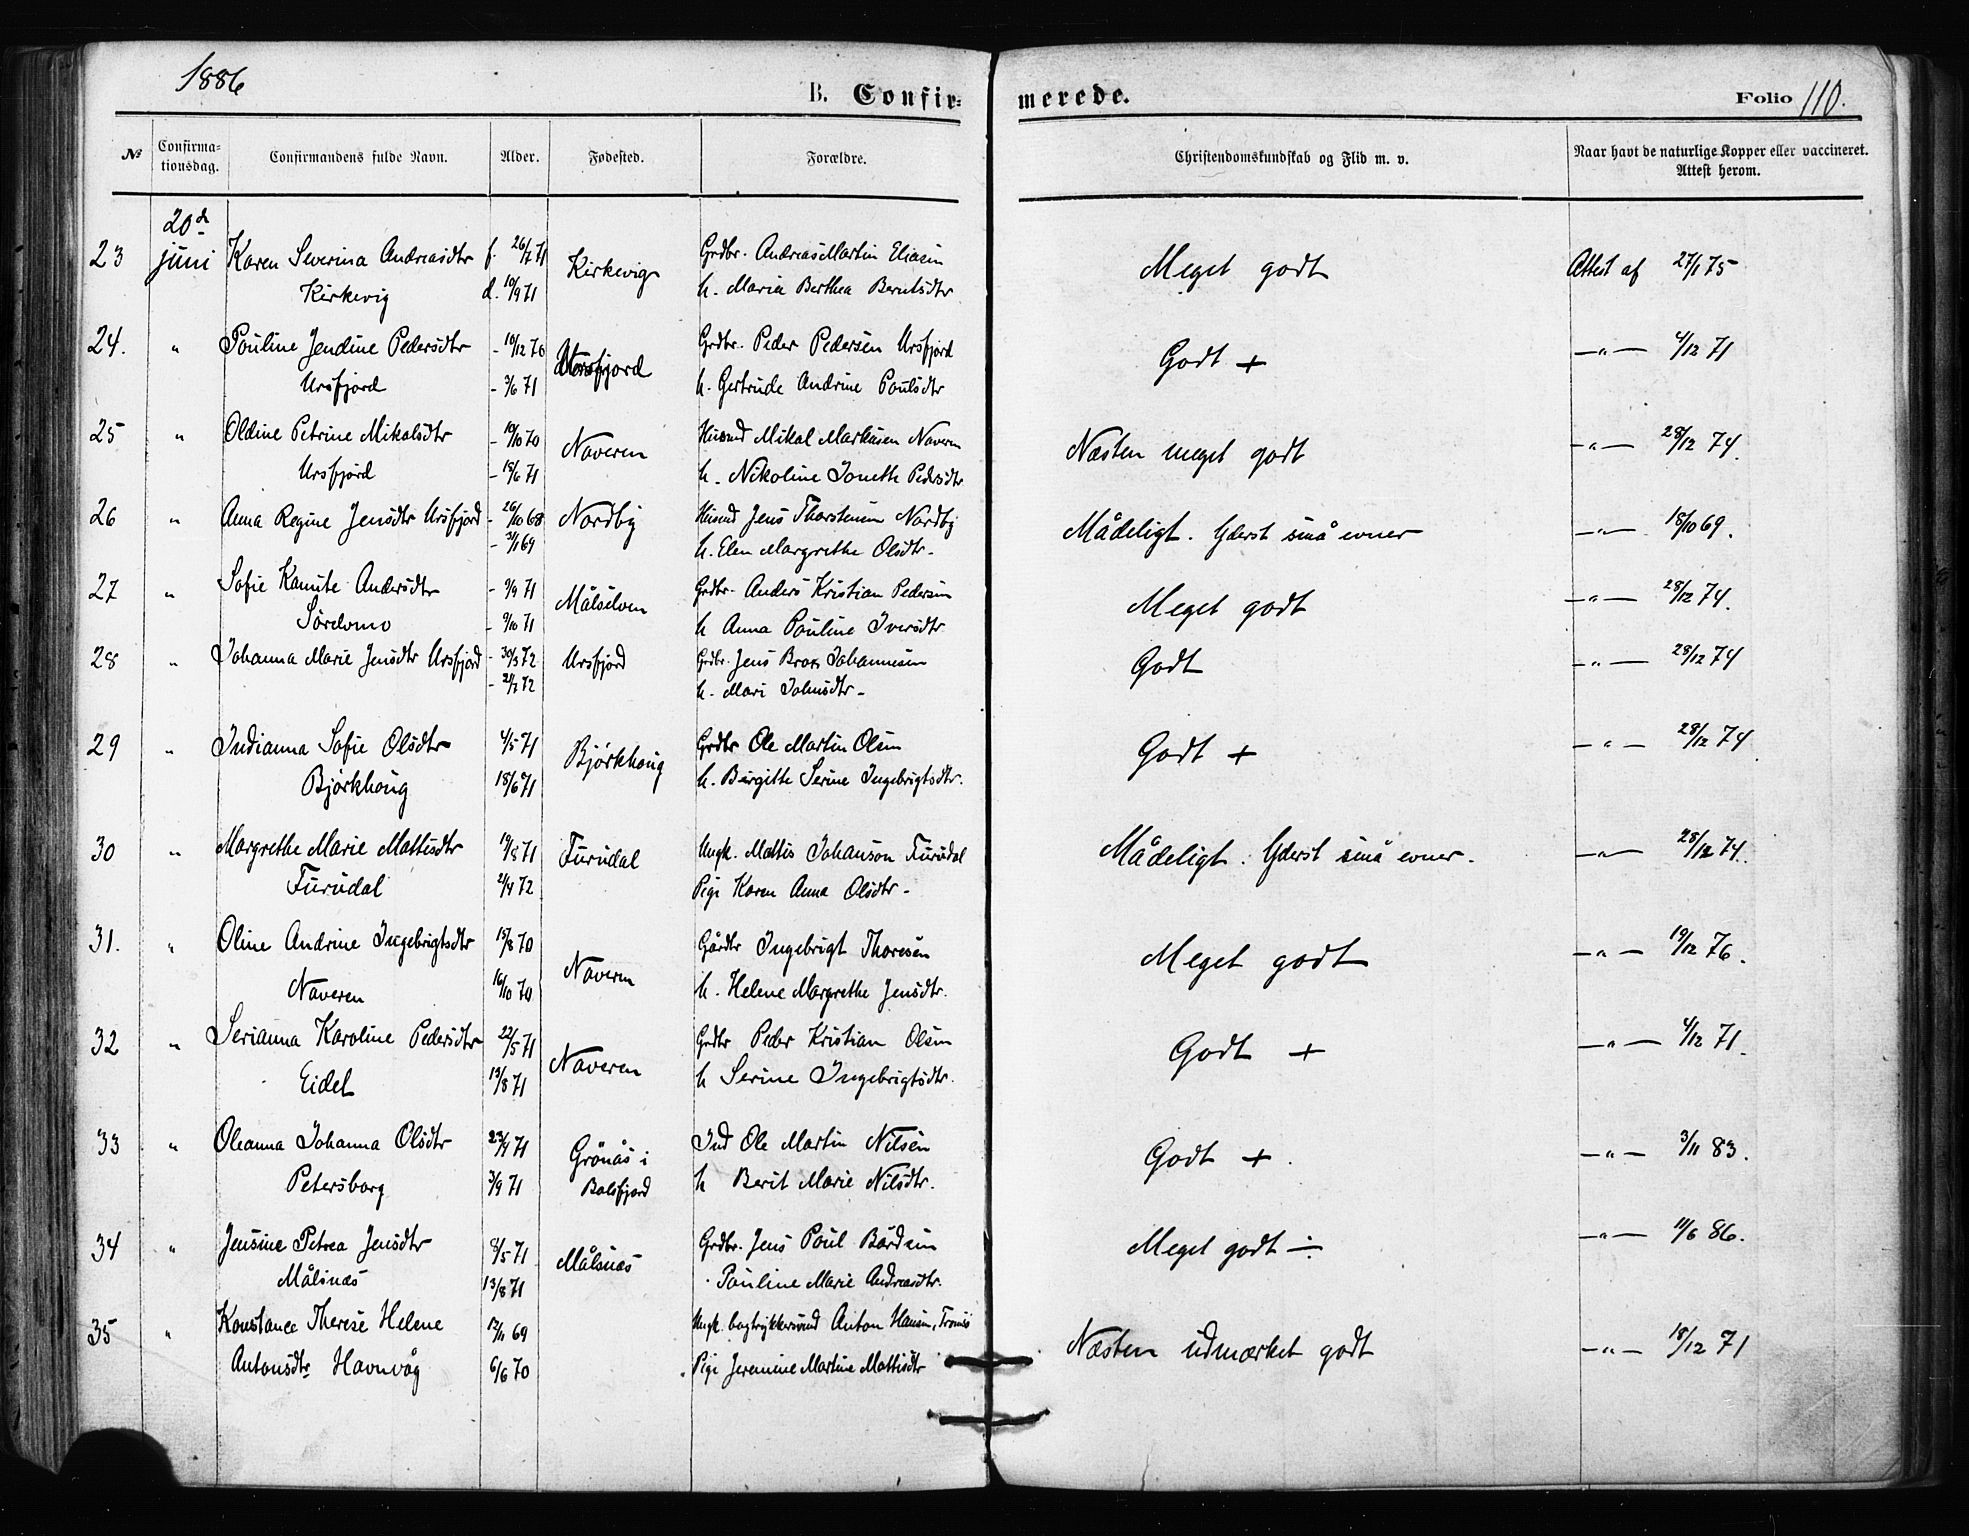 1886
B. Confir=
merede.
Folio 110.
№ Confirma=tionsdag. Confirmandens fulde Navn. Alder. Fødested. Forældre. Christendomskundskab og Flid m. v. Naar havt de naturlige Kopper eller vaccineret. Attest herom.
20d
23 juni Karen Severina Andreasdtr f. 26/7 71 Kirkevig Grdbr. Andreas Martin Eliasen Meget godt Attest af 27/1 75
Kirkevig d. 10/9 71 h. Maria Berthea Berntsdtr
24. " Pauline Jendine Pedersdtr - 10/12 70 Ursfjord Grdbr. Peder Pedersen Ursfjord Godt + —"— 4/12 71
Ursfjord - 3/6 71 h. Gertrude Andrine Poulsdtr
25 " Oldine Petrine Mikalsdtr - 19/10 70 Naveren Husmd Mikal Markusen Naveren Næsten meget godt —"— 28/12 74.
Ursfjord - 18/6 71 h. Nikoline Joneth Pedersdtr
26 " Anna Regine Jensdtr Ursfjord - 26/10 68 Nordby Husmd Jens Thorstensen Nordby Mådeligt. Yderst små evner —"— 18/10 69.
- 31/1 69 h. Elen Margrethe Olsdtr.
27 " Sofie Kamite Andersdtr - 9/9 71 Målselven Grdbr. Anders Kristian Pedersen Meget godt —"— 28/12 74.
Sørdomo - 9/10 71 h Anna Pauline Iversdtr
28 " Johanna Marie Jensdtr Ursfjord - 30/5 72 Ursfjord Grdbr. Jens Brox Johannesen Godt —"— 28/12 74
- 21/7 72 h. Mari Johnsdtr.
29 " Indianna Sofie Olsdtr 4/5 71 Bjørkhoug Grdbr Ole Martin Olsen Godt + —"— 28/12 74
Bjørkhoug 18/6 71 h. Birgitte Serine Ingebrigtsdtr.
30 " Margrethe Marie Mattisdtr 19/8 71 Furudal Ungk. Mattis Johanson Furudal Mådeligt. Yderst små evner. —"— 28/12 74.
Furudal 21/4 72 Pige Karen Anna Olsdtr.
31. " Oline Andrine Ingebrigtsdtr 15/8 70 Naveren Gårdbr Ingebrigt Thoresen Meget godt —"— 19/12 76.
Naveren 16/10 70 h. Helene Margrethe Jensdtr.
32 " Serianna Karoline Pedersdtr 22/5 71 Naveren Grdbr Peder Kristian Olsen Godt + —"— 4/12 71.
Eidet 13/8 71 h Serine Ingebrigtsdtr.
33 " Oleanna Johanna Olsdtr 23/4 71 Grönås i Ind Ole Martin Nilsen Godt +. —"— 3/11 83.
Petersborg 3/9 71 Balsfjord h Berit Marie Nilsdtr.
34 " Jensine Petrea Jensdtr 8/5 71 Målsnæs Grdbr. Jens Poul Bårdsen Meget godt ÷ —"— 11/6 86.
Målsnæs 13/8 71 Pauline Marie Andreasdtr.
35 " Konstance Therese Helene 12/11 69 Ungk. bogtrykkersvend Anton Hansen, Tromsö Næsten udmærket godt —"— 18/12 71
Antonsdtr Havnvåg 6/6 70 Pige Jeremine Martine Mattisdtr